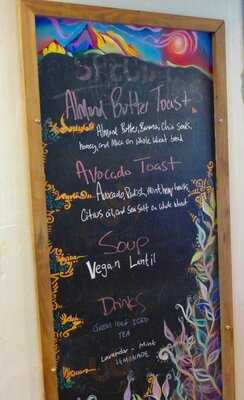 SPECIALS
Almond Butter Toast
Almond Butter, Banana, Chia Seeds,
honey, and Mica on whole wheat bread
Avocado Toast
Avocado, Radish, Mint, hemp hearts,
Citrus oil, and Sea Salt on whole wheat
Soup
Vegan Lentil
Drinks
Green leaf ICED
TEA
Lavender - Mint
LEMONADE